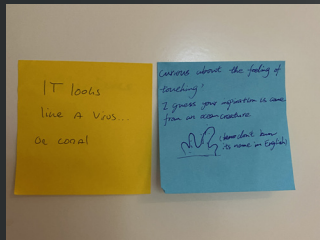 IT looks
like A VIRUS...
OR CORAL
curious about the feeling of
touching!
I guess your inspiration is came
from an ocean creature
(I dont know
its name in English)